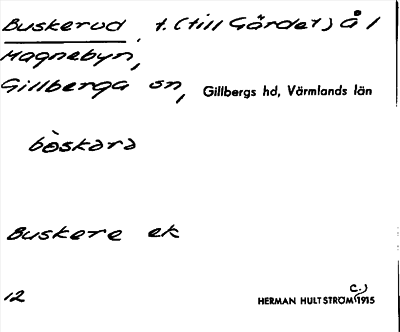 Buskerud, t. (till Gårdet) å 1
Magnebyn,
Gillberga sn, Gillbergs hd, Värmlands län
bòskara
Buskere ek
12 HERMAN HULTSTRÖM (C.) 1915